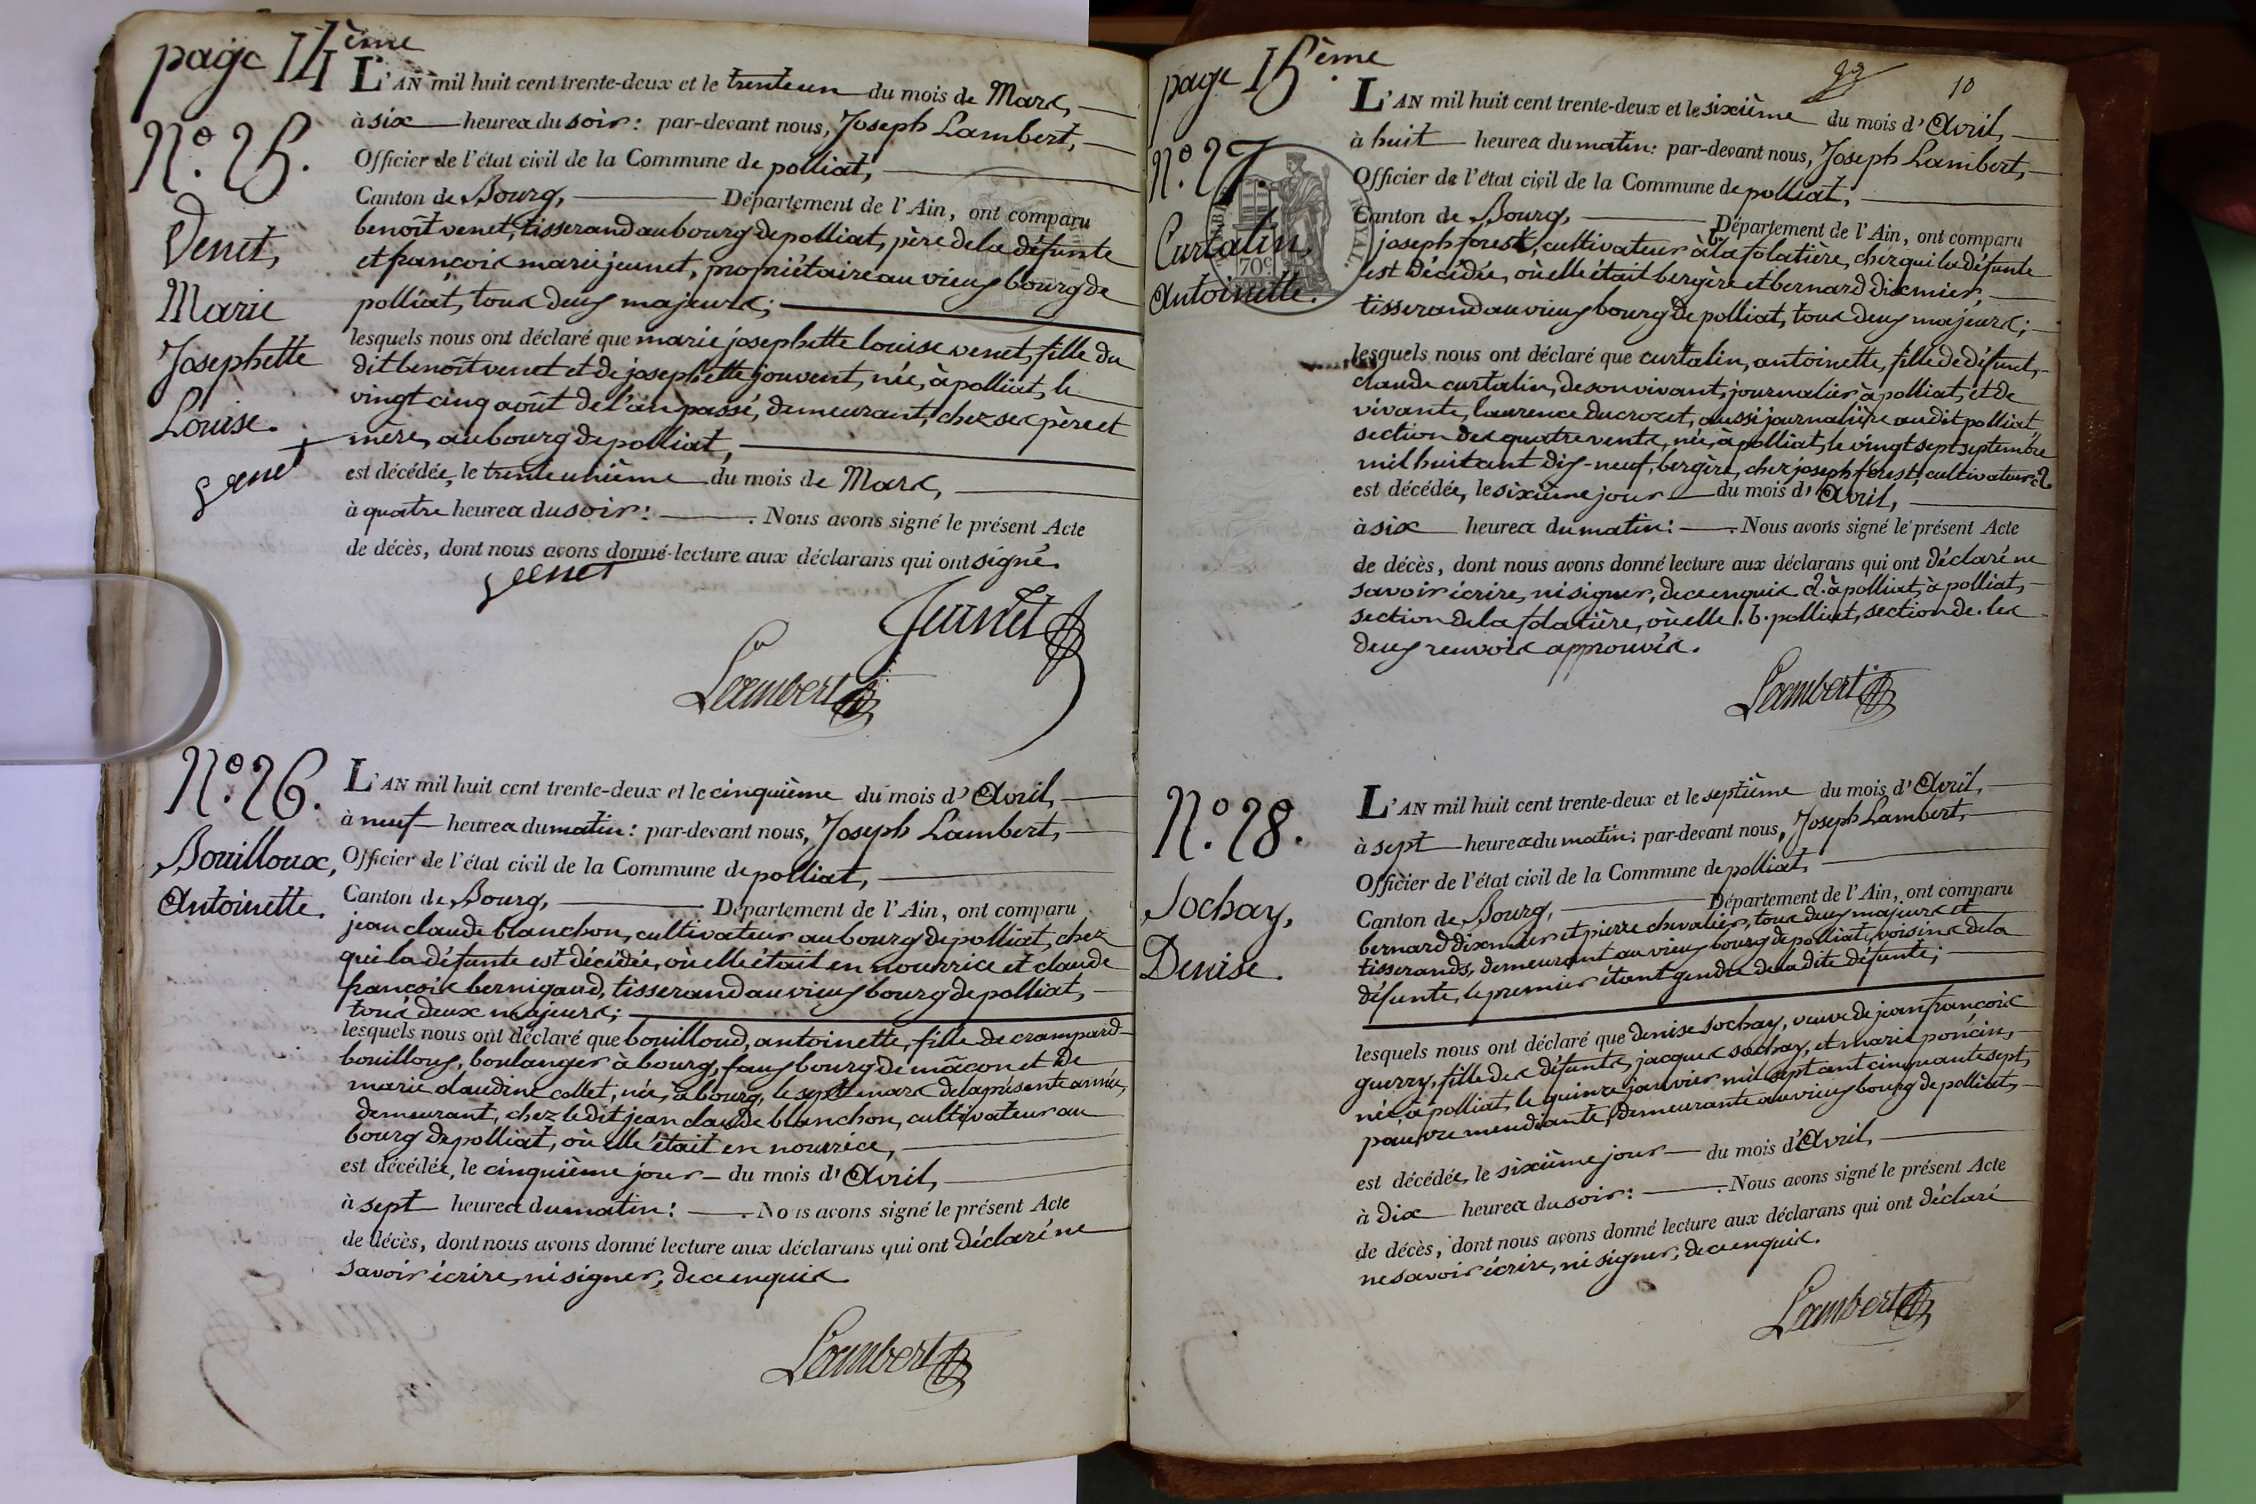 page 14ème
L'AN mil huit cent trente-deux et le trente un du mois de Mars,
à six heures du soir: par-devant nous, Joseph Lambert,
Officier de l'état civil de la Commune de polliat,
Canton de Bourg, Département de l'Ain, ont comparu
benoît venet, tisserand au bourg de polliat, père de la défunte
et françois marie jeunet, propriétaire au vieux bourg de
polliat, tous deux majeurs;
lesquels nous ont déclaré que marie josephette louise venet, fille du
dit benoît venet et de josephette jouvent, née, à polliat, le
vingt cinq août de l'an passé, demeurant, chez ses père et
mère, au bourg de polliat,
est décédée, le trente unième du mois de Mars,
à quatre heures du soir: Nous avons signé le présent Acte
de décès, dont nous avons donné lecture aux déclarans qui ont signé.
venet
Jeunet
Lambert
N.º 25.
Venet,
Marie
Josephette
Louise.
venet
N.º 26.
Bouilloux,
Antoinette.
L'AN mil huit cent trente-deux et le cinquième du mois d'Avril,
à neuf heures du matin: par-devant nous, Joseph Lambert,
Officier de l'état civil de la Commune de polliat,
Canton de Bourg, Département de l'Ain, ont comparu
jean claude blanchon, cultivateur au bourg de polliat, chez
qui la défunte est décédée, où elle était en nourrice et claude
françois bernigaud, tisserand au vieux bourg de polliat,
tous deux majeurs;
lesquels nous ont déclaré que bouilloud, antoinette, fille de crampard
bouilloux, boulanger à bourg, faux bourg de mâcon et de
marie claudine collet, née, à bourg, le sept mars de la présente année,
demeurant, chez le dit jean claude blanchon, cultivateur au
bourg de polliat, où elle était en nourrice,
est décédée, le cinquième jour du mois d'Avril,
à sept heures du matin: Nous avons signé le présent Acte
de décès, dont nous avons donné lecture aux déclarans qui ont déclaré ne
savoir écrire, ni signer, de ce enquis
Lambert
page 15ème
10
L'AN mil huit cent trente-deux et le sixième du mois d'Avril,
à huit heures du matin: par-devant nous, Joseph Lambert,
Officier de l'état civil de la Commune de polliat,
Canton de Bourg, Département de l'Ain, ont comparu
joseph forest, cultivateur à b. la folatière, chez qui la défunte
est décédée, où elle était bergère et bernard dixmier,
tisserand au vieux bourg de polliat, tous deux majeurs;
lesquels nous ont déclaré que curtalin, antoinette, fille de défunt,
claude curtalin, de son vivant, journalier à polliat, et de
vivante, laurence ducrozet, aussi journalière au dit polliat,
section des quatre vents, née, à polliat, le vingt sept septembre
mil huit cent dix-neuf, bergère, chez joseph forest, cultivateur a
est décédée, le sixième jour du mois d'Avril,
à six heures du matin: Nous avons signé le présent Acte
de décès, dont nous avons donné lecture aux déclarans qui ont déclaré ne
savoir écrire, ni signer, de ce enquis a. à polliat, à polliat,
section de la folatière, où elle. b. polliat, section de. les
deux renvois approuvés.
Lambert
N.º 27.
Curtalin,
Antoinette.
70c
N.º 28.
Sochay,
Denise.
L'AN mil huit cent trente-deux et le septième du mois d'Avril,
à sept heures du matin: par-devant nous, Joseph Lambert,
Officier de l'état civil de la Commune de polliat,
Canton de Bourg, Département de l'Ain, ont comparu
bernard dixmier et pierre chevalier, tous deux majeurs et
tisserands, demeurant au vieux bourg de polliat, voisins de la
défunte, le premier étant gendre de la dite défunte;
lesquels nous ont déclaré que denise sochay, veuve de jean françois
guerry, fille des défunts, jacques sochay, et marie poncin,
née, à polliat, le quinze janvier mil sept cent cinquante sept,
pauvre mendiante, demeurante au vieux bourg de polliat,
est décédée, le sixième jour du mois d'Avril,
à dix heures du soir: Nous avons signé le présent Acte
de décès, dont nous avons donné lecture aux déclarans qui ont déclaré
ne savoir écrire, ni signer, de ce enquis.
Lambert